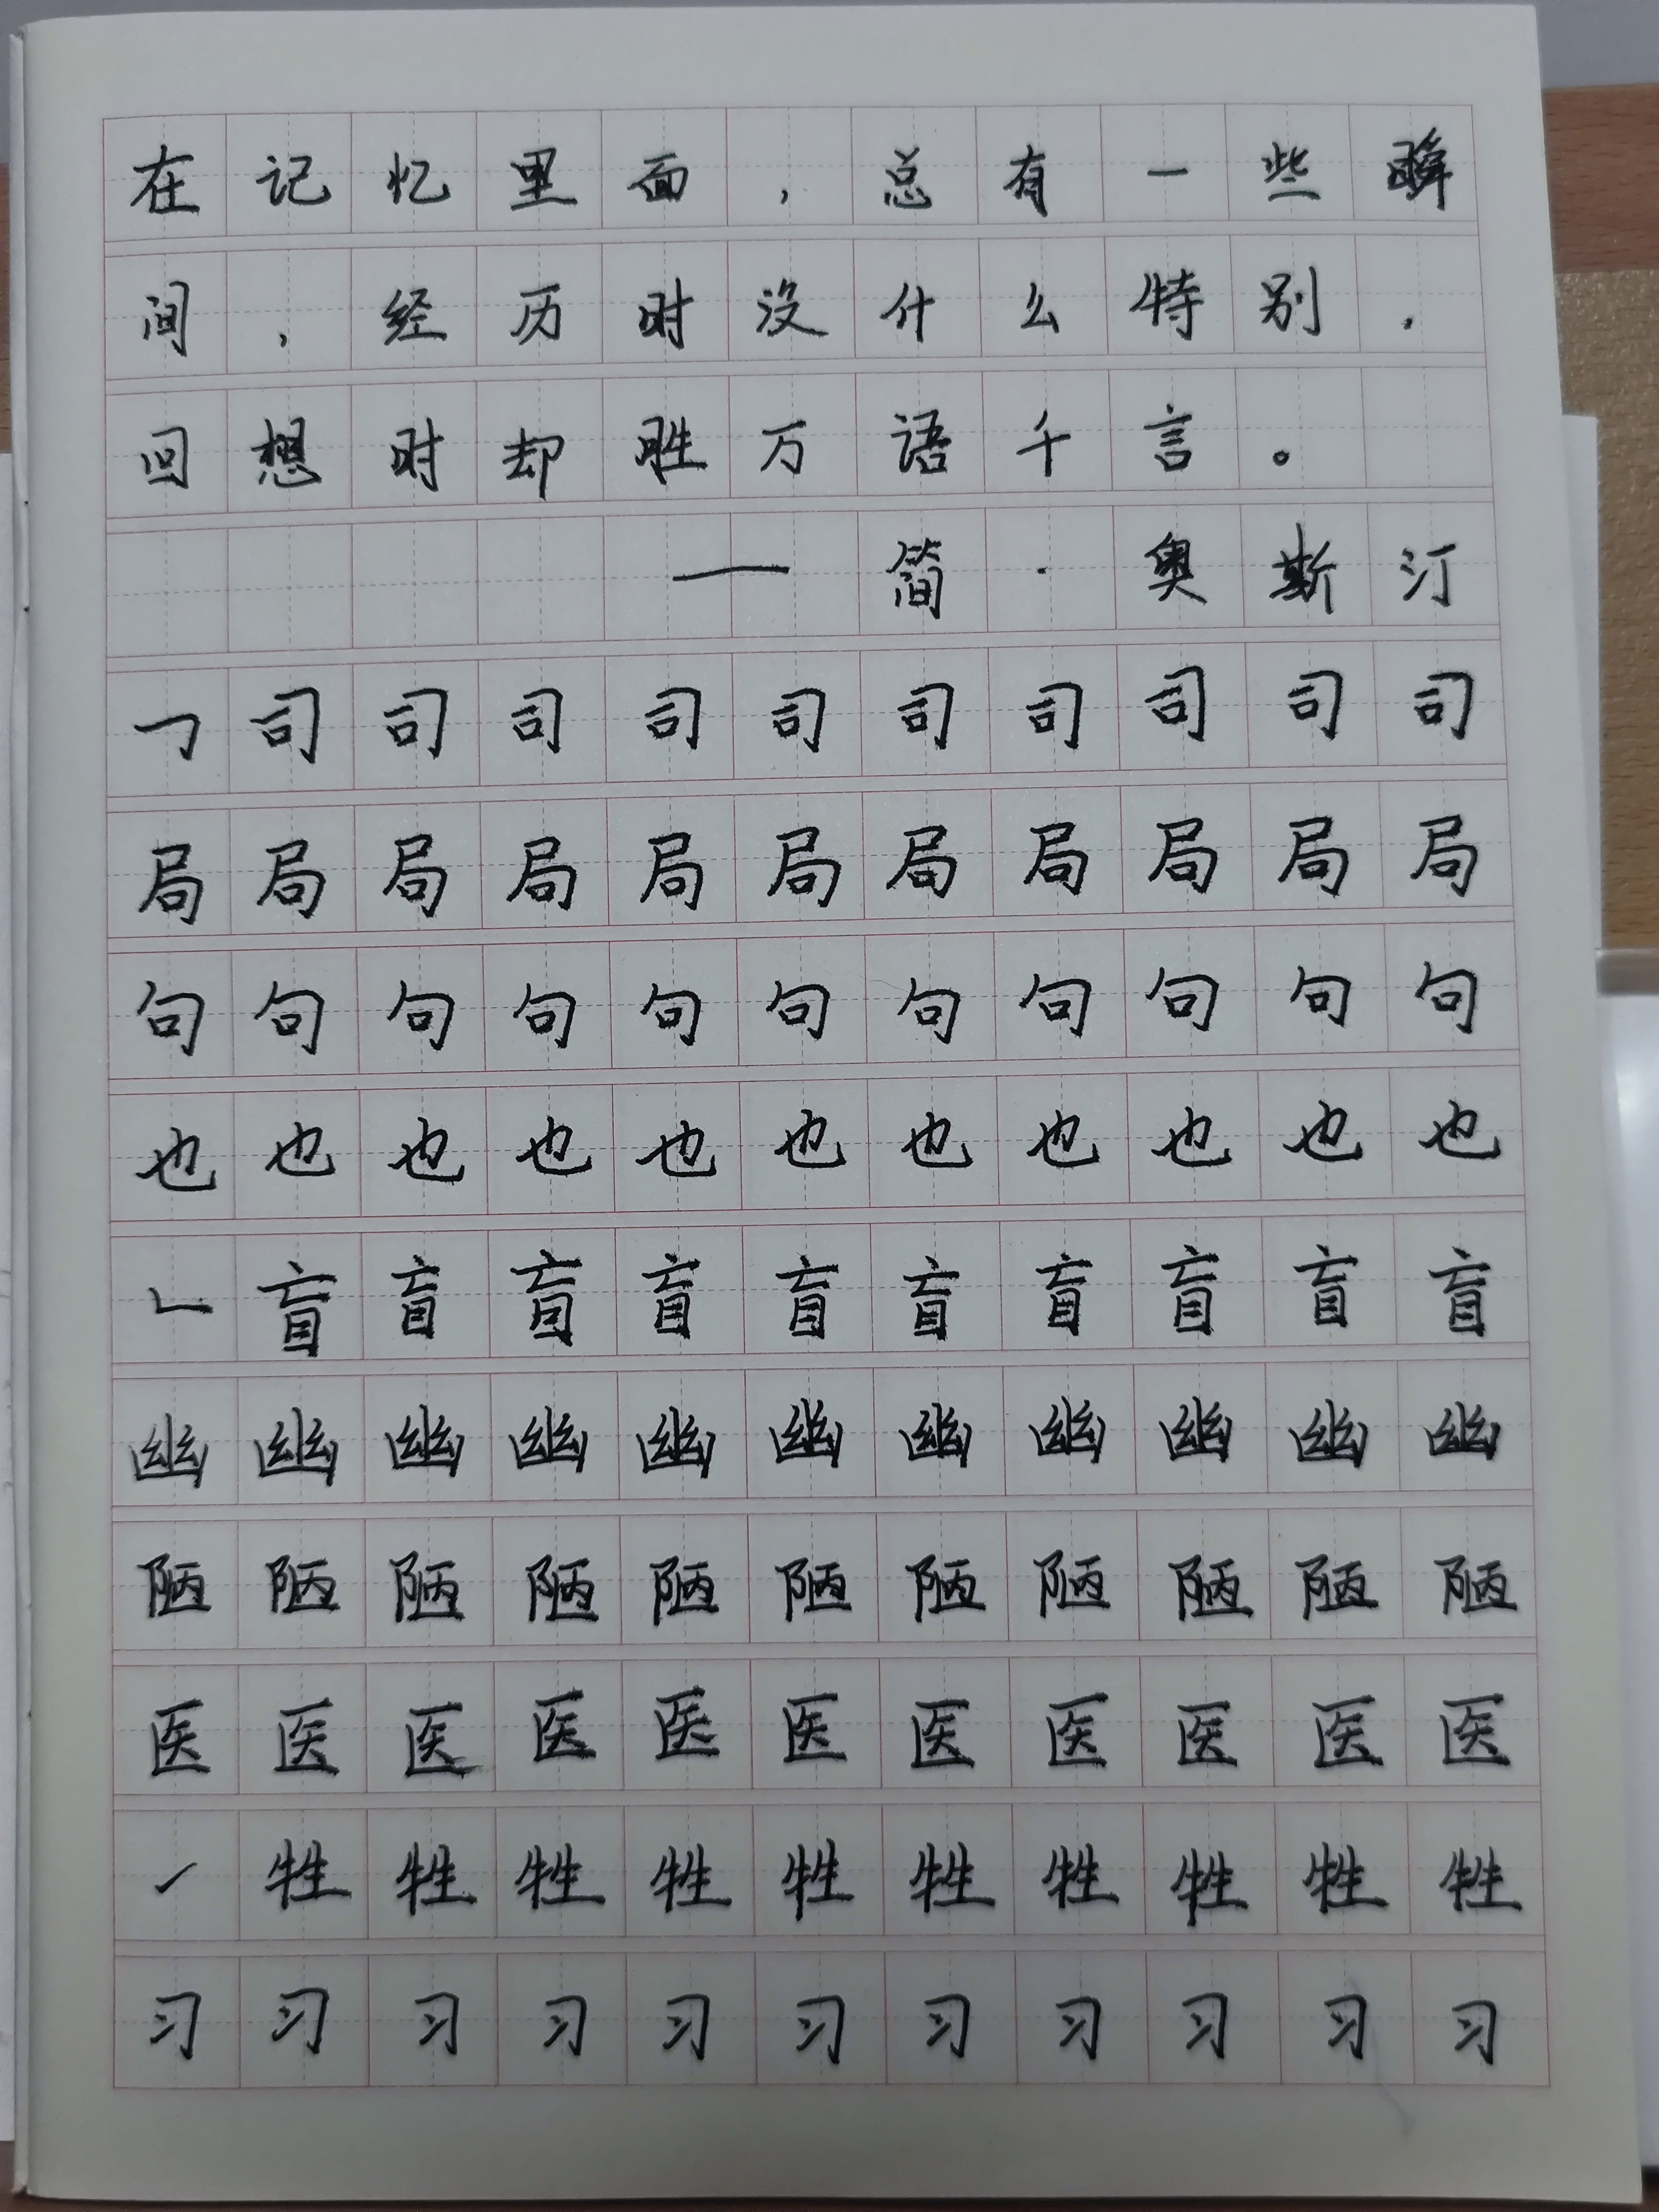 在记忆里面，总有一些瞬
间，经历时没什么特别，
回想时却胜万语千言。
——简·奥斯汀
㇆司司司司司司司司司司
局局局局局局局局局局局
句句句句句句句句句句句
也也也也也也也也也也也
𠃊盲盲盲盲盲盲盲盲盲盲
幽幽幽幽幽幽幽幽幽幽幽
陋陋陋陋陋陋陋陋陋陋陋
医医医医医医医医医医医
㇀牲牲牲牲牲牲牲牲牲牲
习习习习习习习习习习习